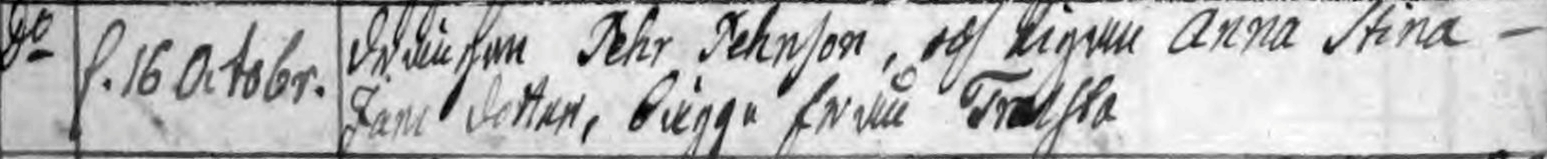 Do f. 16 Octobr. Drängen Pehr Pehrsson, och Pigan Anna Stina -
Jans dotter, begge från